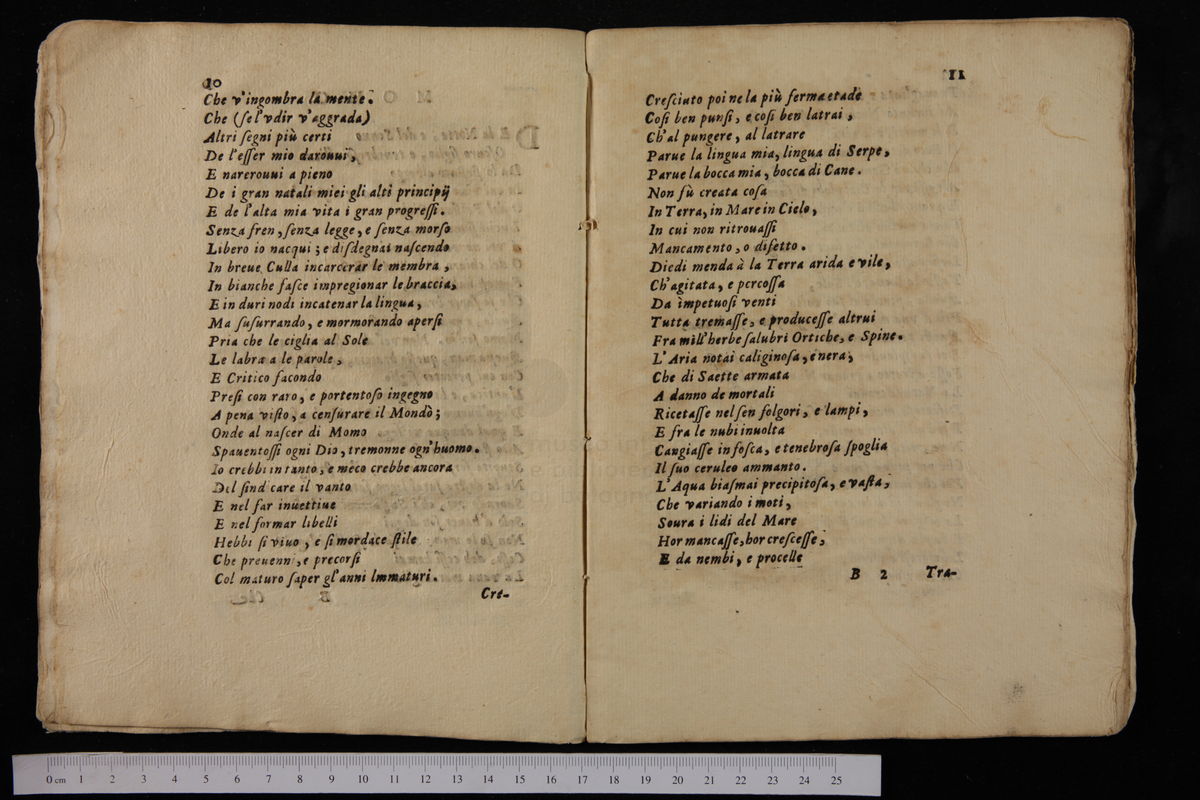 10
Che v'ingombra la mente.
Che (ſe l'vdir v'aggrada)
Altri ſegni più certi
De l'eſſer mio darouui,
E narerouui a pieno
De i gran natali miei gli alti principij
E de l'alta mia vita i gran progreſſi.
Senza fren, ſenza legge, e ſenza morſo
Libero io nacqui; e diſdegnai naſcendo
In breue Culla incarcerar le membra,
In bianche faſce impregionar le braccia,
E in duri nodi incatenar la lingua,
Ma ſuſurrando, e mormorando aperſi
Pria che le ciglia al Sole
Le labra a le parole,
E Critico facondo
Preſi con raro, e portentoſo ingegno
A pena viſto, a cenſurare il Mondò;
Onde al naſcer di Momo
Spauentoſſi ogni Dio, tremonne ogn'huomo.
Io crebbi in tanto, e meco crebbe ancora
Del ſindicare il vanto
E nel far inuettiue
E nel formar libelli
Hebbi ſi viuo, e ſi mordace ſtile
Che preuenni, e precorſi
Col maturo ſaper gl'anni Immaturi.
B
Cre-
11
Creſciuto poi ne la più ferma etade
Coſi ben punſi, e coſi ben latrai,
Ch'al pungere, al latrare
Parue la lingua mia, lingua di Serpe,
Parue la bocca mia, bocca di Cane.
Non fù creata coſa
In Terra, in Mare in Cielo,
In cui non ritrouaſſi
Mancamento, o difetto.
Diedi menda à la Terra arida e vile,
Ch'agitata, e percoſſa
Da ìmpetuoſi venti
Tutta tremaſſe, e produceſſe altrui
Fra mill'herbe ſalubri Ortiche, e Spine.
L'Aria notai caliginoſa, e nera,
Che di Saette armata
A danno de mortali
Ricetaſſe nel ſen folgori, e lampi,
E fra le nubi inuolta
Cangiaſſe in foſca, e tenebroſa ſpoglia
Il ſuo ceruleo ammanto.
L'Aqua biaſmai precipitoſa, e vaſta,
Che variando i moti,
Soura i lidi del Mare
Hor mancaſſe, hor creſceſſe,
E da nembi, e procelle
B 2 Tra-
0 cm 1 2 3 4 5 6 7 8 9 10 11 12 13 14 15 16 17 18 19 20 21 22 23 24 25